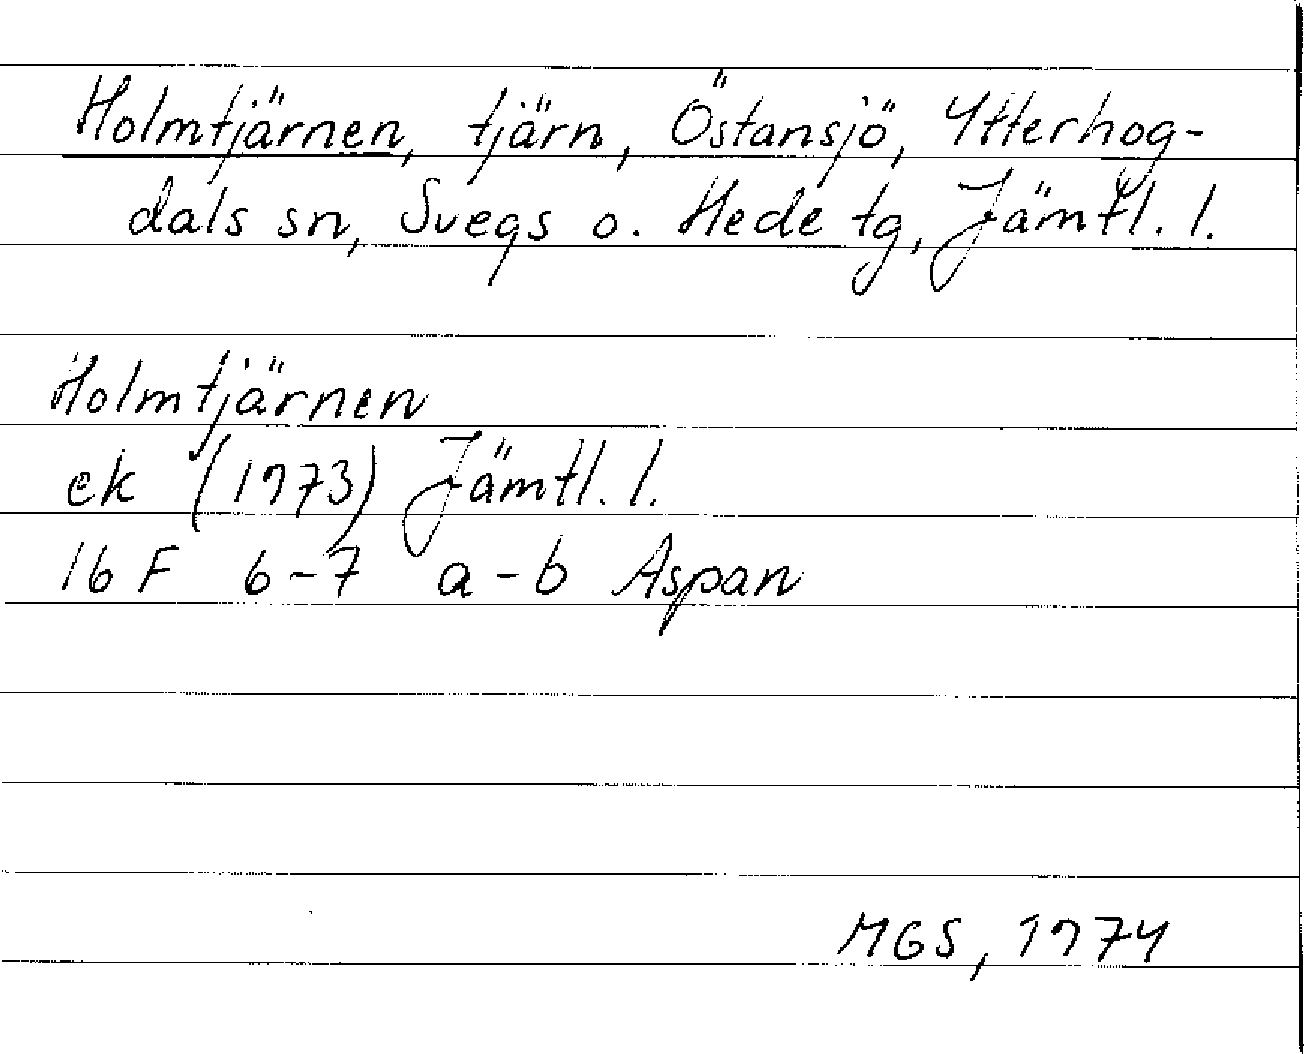 Holmtjärnen, tjärn, Östansjö, Ytterhog-
dals sn, Svegs o. Hede tg, Jämtl. l.
Holmtjärnen
ek (1973) Jämtl. l.
16 F 6-7 a-b Aspan
MGS, 1974